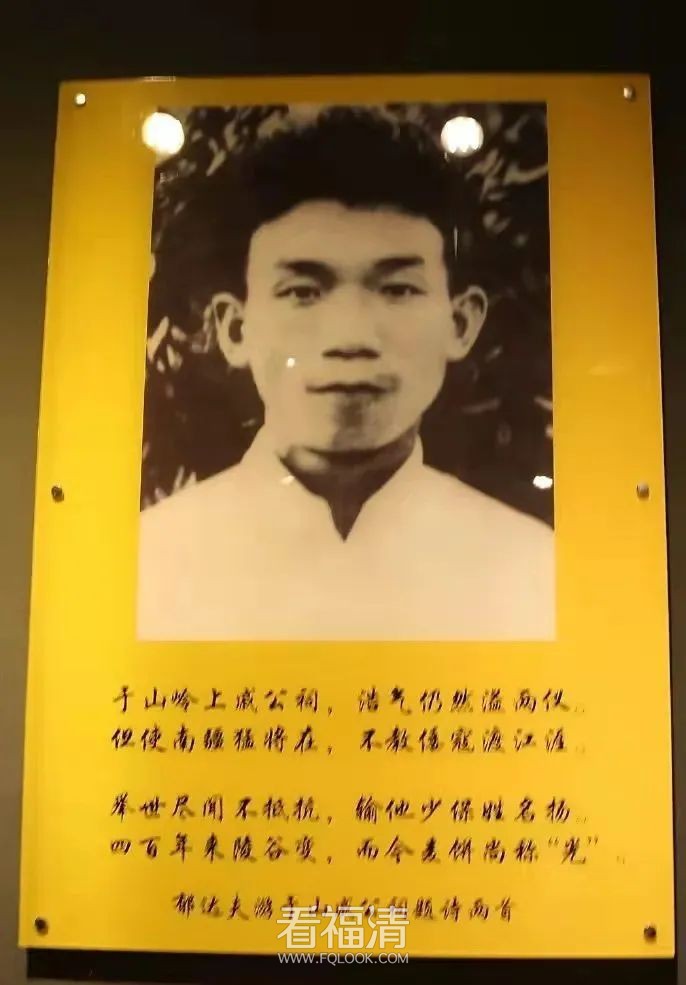 于山岭上戚公祠，浩气仍然溢两仪。
但使南疆猛将在，不教倭寇渡江涯。
举世尽闻不抵抗，输他少保姓名扬。
四百年来陵谷变，而今麦饼尚称“光”。
郁达夫游于山戚公祠题诗两首
看福清
WWW.FQLOOK.COM